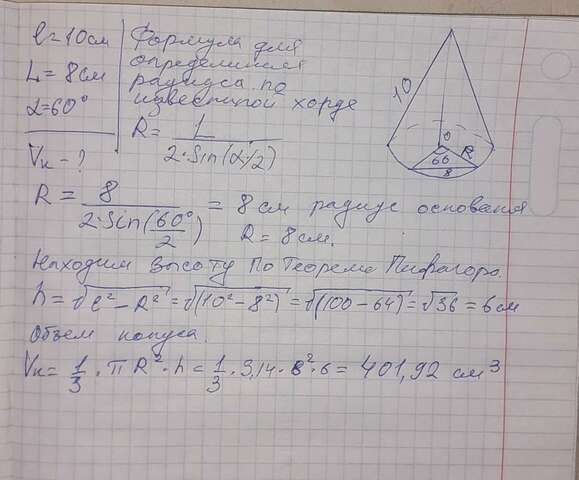 l=10см
L=8см
α=60°
Vк-?
Формула для
определения
радиуса по
известной хорде
R= L / 2·Sin(α/2)
10
O
R
60
8
R = 8 / 2·Sin(60°/2) = 8 см радиус основания
R=8см.
Находим высоту по теореме Пифагора.
h=√l²-R²=√(10²-8²)=√(100-64)=√36=6см
Объем конуса.
Vк=1/3·πR²·h=1/3·3,14·8²·6=401,92 см³